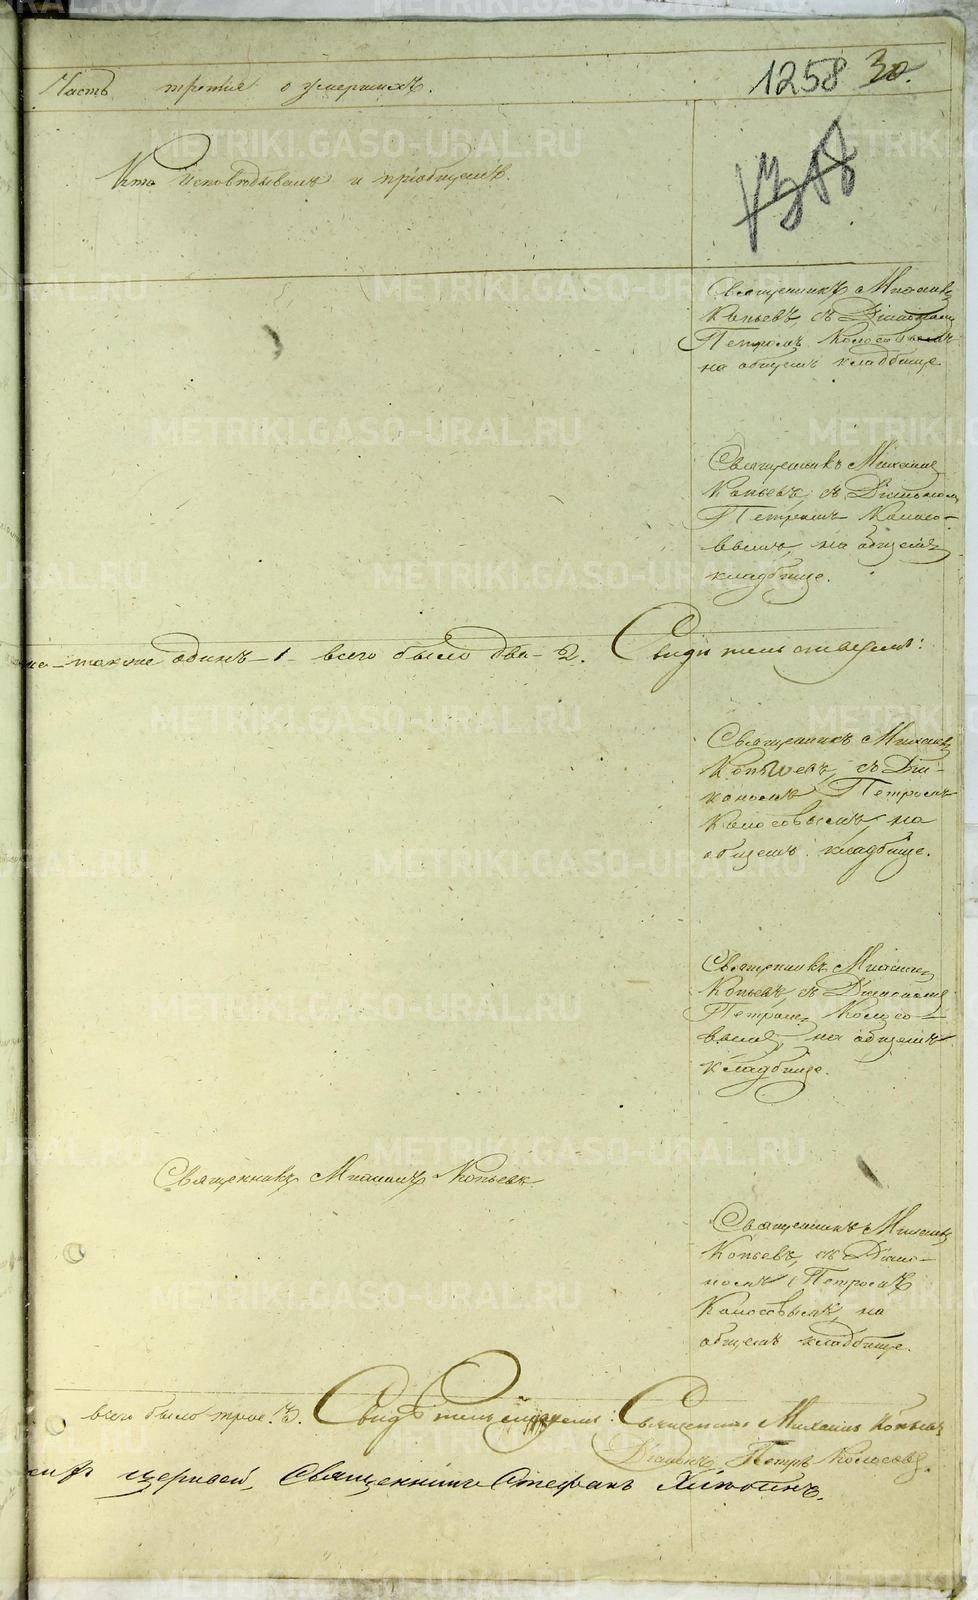 Часть третія о умершихъ.
1258 30.
Кто исповѣдывалъ и пріобщалъ.
Священникъ Михаилъ
Копьевъ, съ Діакономъ
Петромъ Колосовымъ
на общемъ кладбище
Священникъ Михаилъ
Копьевъ, съ Діакономъ
Петромъ Колосо-
вымъ, на общемъ
кладбище.
также одинъ - 1 - всего было два - 2. Свидѣтельствуемъ:
Священникъ Михаилъ
Копьевъ, съ Діа-
кономъ Петромъ
Колосовымъ, на
общемъ кладбище.
Священникъ Михаилъ
Копьевъ, съ Діакономъ
Петромъ Колосо-
вымъ, на общемъ
кладбище.
Священникъ Михаилъ Копьевъ
Священникъ Михаилъ
Копьевъ, съ Діако-
номъ Петромъ
Колосовымъ, на
общемъ кладбище.
всего было трое. 3. Священникъ Михаилъ Копьевъ
Діаконъ Петръ Колосовъ.
церквей, Священникъ Стефанъ
METRIKI.GASO-URAL.RU